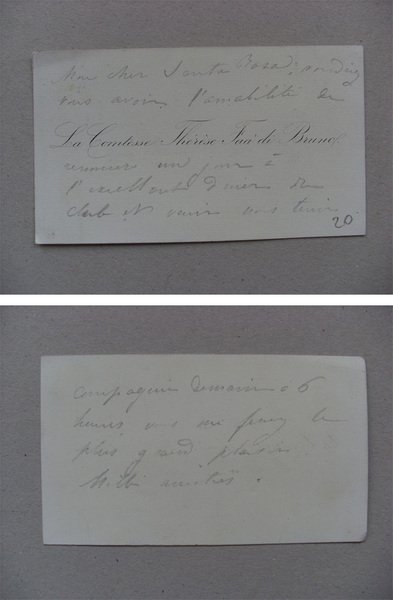 Mon cher Santa Rosa, voudriez
vous avoir l'amabilité de
La Comtesse Thérèse Faà di Bruno
renoncer un jour à
l'excellent diner du
club et venir nous tenir
20
compagnie demain à 6
heures vous me ferez le
plus grand plaisir
Mille amitiés.